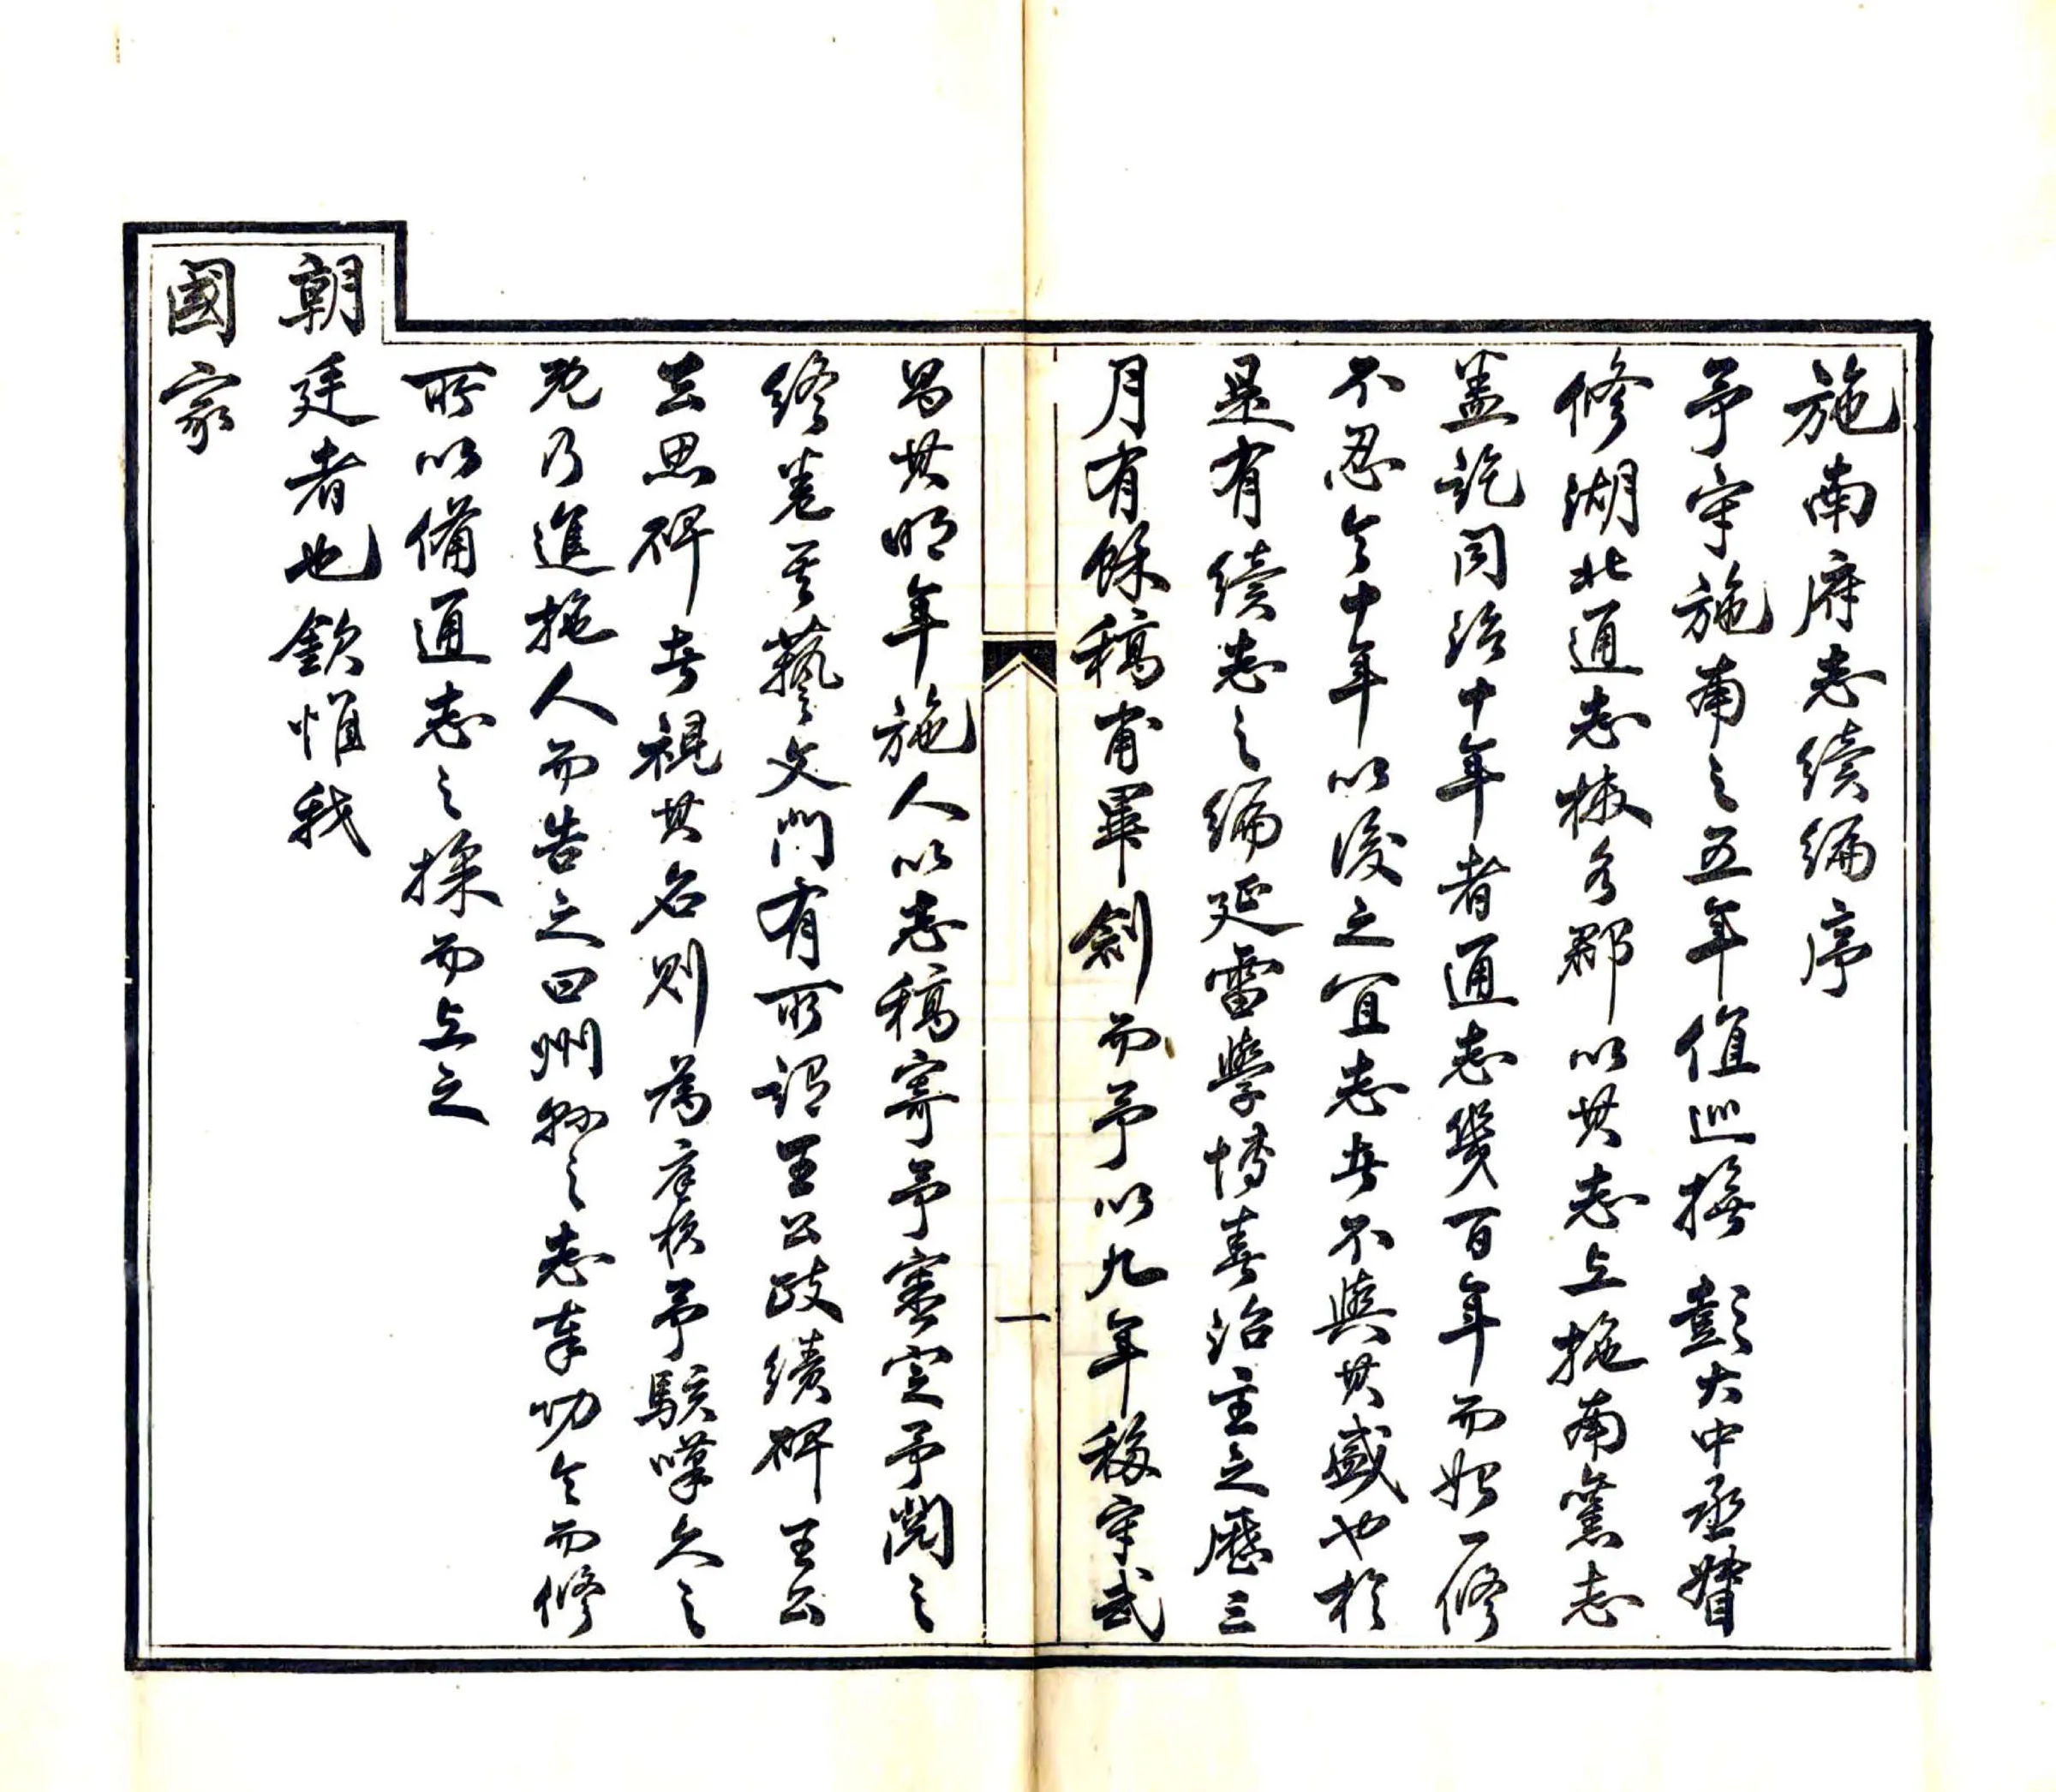 施南府志續編序
予守施南之五年値巡撫 彭大中丞督
修湖北通志檄各郡以其志上施南舊志
蓋訖同治十年者通志幾百年而始一修
不忍令十年以後之宜志者不與其盛也於
是有續志之編延雷學博春沼主之歷三
月有餘稿甫畢劍而予以九年移守武
昌其明年施人以志稿寄予審定予閱之
終卷至藝文門有所謂王公政績碑王公
去思碑者視其名則為序棪予駭嘆久之
旣乃進施人而告之曰州縣之志奉功令而修
所以備通志之採而上之
朝廷者也欽惟我
國家
一